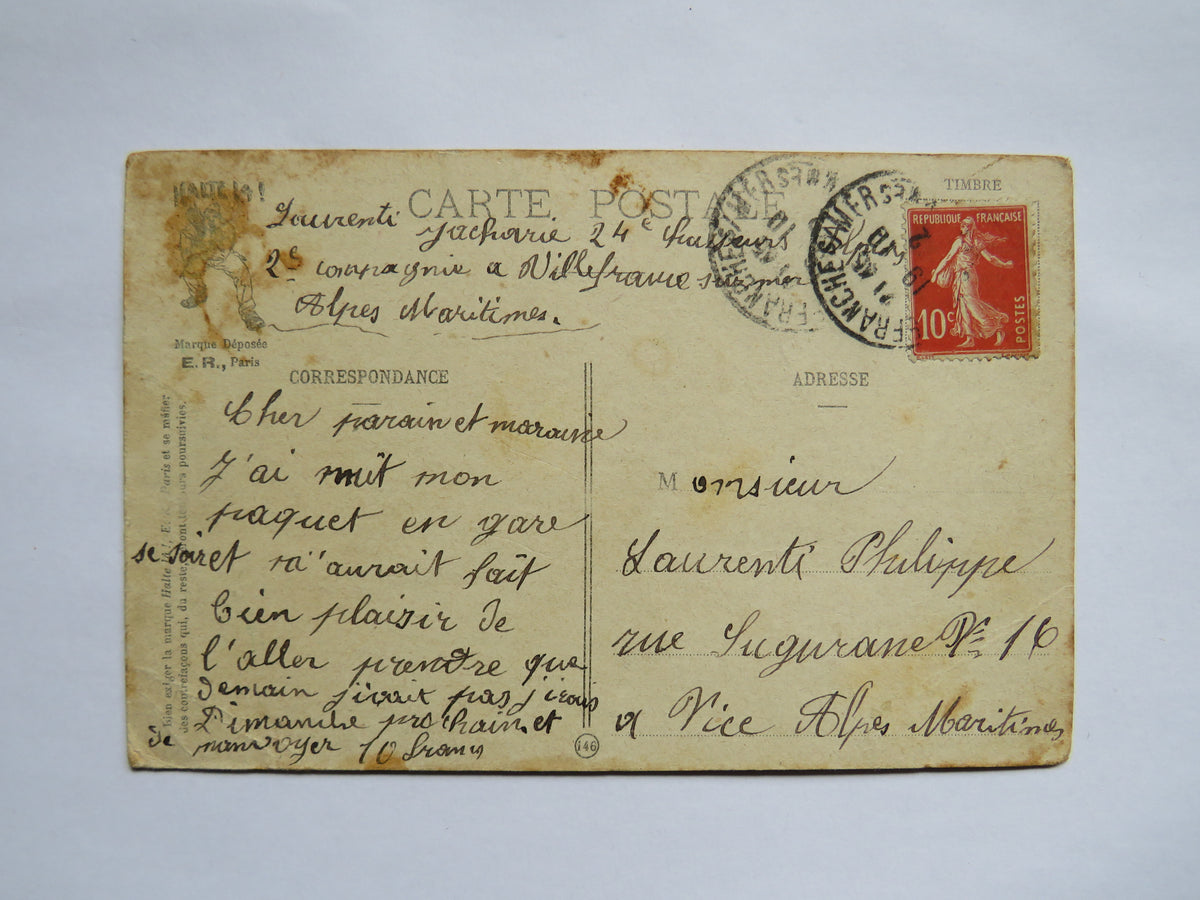 HALTE LÀ!
CARTE POSTALE
TIMBRE
Laurenti
Zacharie 24e Chasseurs
2e compagnie a Villefranche sur mer
Alpes Maritimes.
REPUBLIQUE FRANÇAISE
10c
POSTES
FRANCHE S MER
FRANCHE S MER
Marque Déposée
E. R., Paris
CORRESPONDANCE
ADRESSE
Cher parain et maraine
J'ai mit mon
paquet en gare
se soir et m'aurait fait
bien plaisir de
l'aller prendre que
demain j'irait pas j'irais
Dimanche prochain et
de m'anvoyer 10 francs
Bien exiger la marque Halte là! E. R. Paris et se méfier
des contrefaçons qui, du reste, seront poursuivies.
146
Monsieur
Laurenti Philippe
rue Sugurane No 16
a Nice Alpes Maritimes